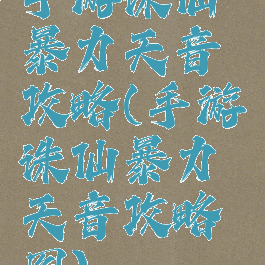 手游诛仙
暴力天音
攻略(手游
诛仙暴力
天音攻略
图)